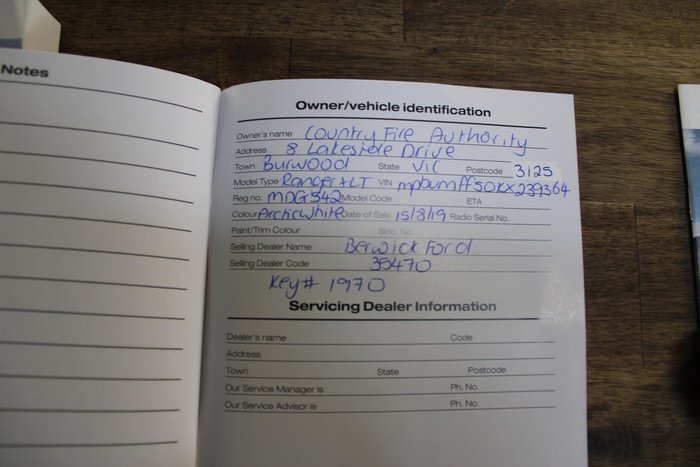 Notes
Owner/vehicle identification
Owner's name Country Fire Authority
Address 8 Lakeside Drive
Town Burwood State Vic Postcode 3125
Model Type Ranger XLT VIN mpbumff50KX239364
Reg no. MDG542 Model Code ETA
Colour Arctic White Date of Sale 15/8/19 Radio Serial No.
Paint/Trim Colour Sido. No.
Selling Dealer Name Berwick Ford
Selling Dealer Code 35470
Key# 1970
Servicing Dealer Information
Dealer's name Code
Address
Town State Postcode
Our Service Manager is Ph. No.
Our Service Advisor is Ph. No.